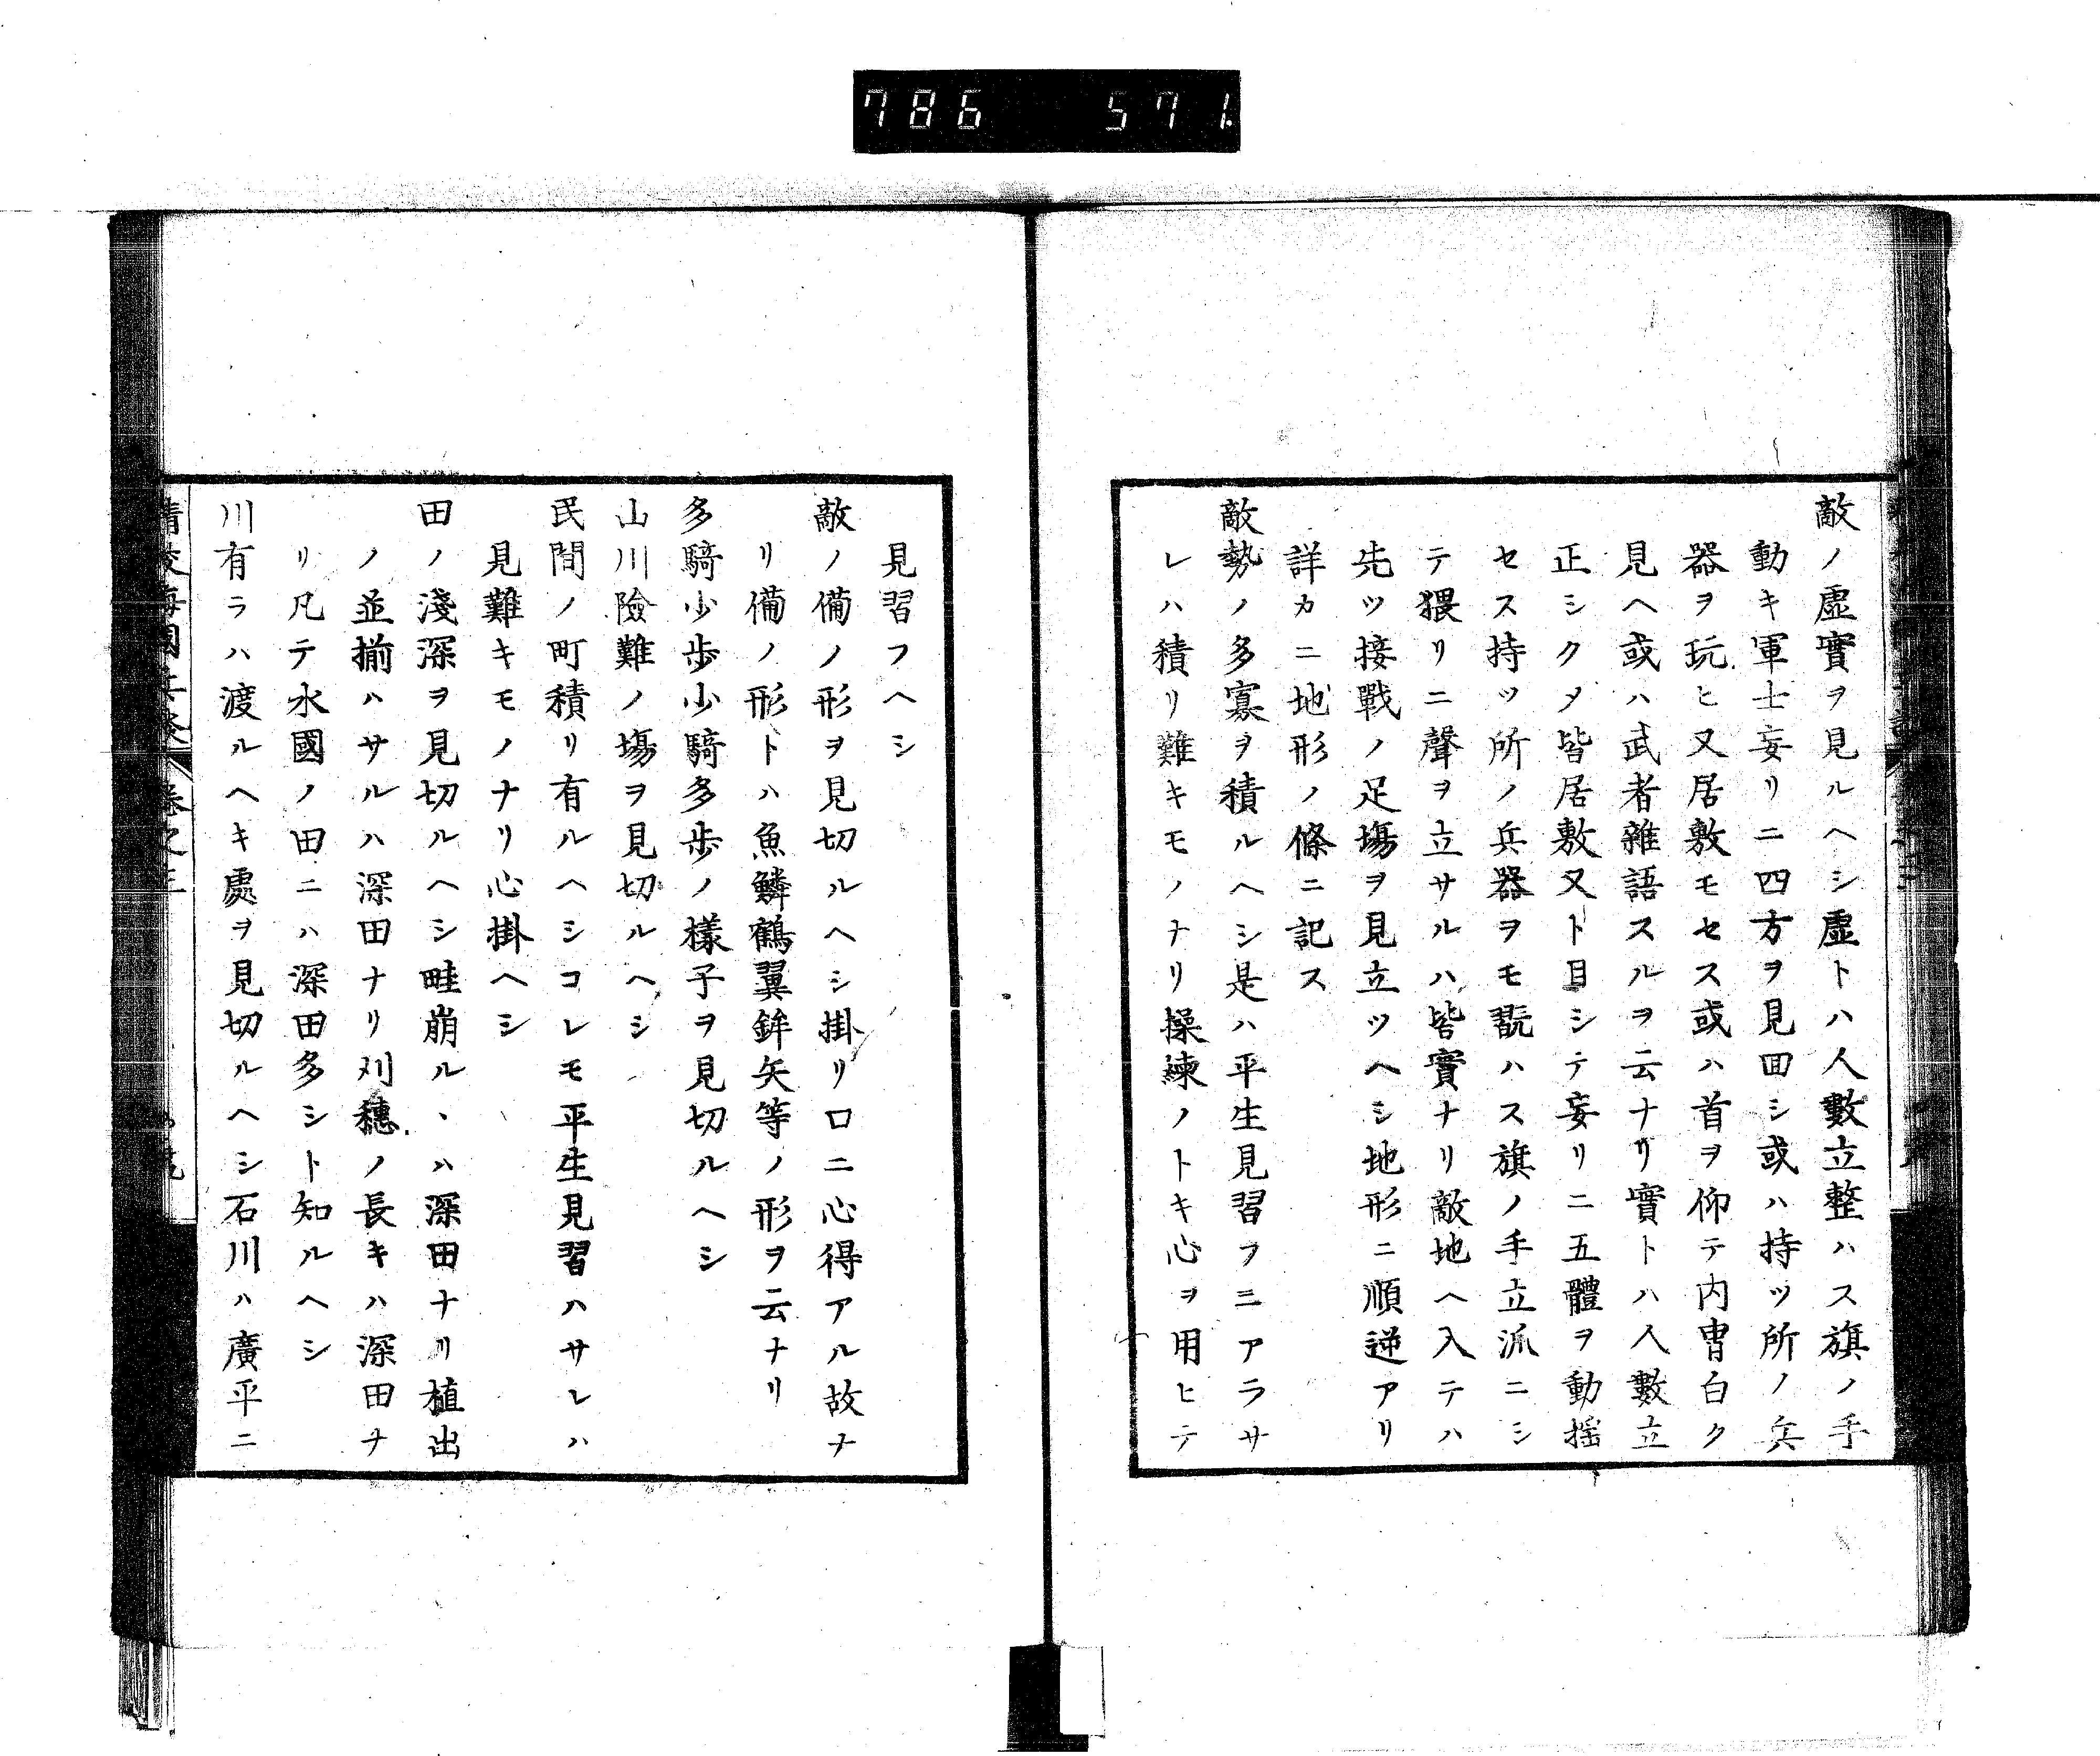 786 571
敵ノ虛實ヲ見ルヘシ虛トハ人數立整ハス旗ノ手
動キ軍士妄リニ四方ヲ見回シ或ハ持ツ所ノ兵
器ヲ玩ヒ又居敷モセス或ハ首ヲ仰テ内冑白ク
見ヘ或ハ武者雜語スルヲ云ナリ實トハ人數立
正シクメ皆居敷又ト目シテ妄リニ五體ヲ動揺
セス持ツ所ノ兵器ヲモ翫ハス旗ノ手立流ニシ
テ猥リニ聲ヲ立サルハ皆實ナリ敵地ヘ入テハ
先ツ接戰ノ足塲ヲ見立ツヘシ地形ニ順逆アリ
詳カニ地形ノ條ニ記ス
敵勢ノ多寡ヲ積ルヘシ是ハ平生見習フニアラサ
レハ積リ難キモノナリ操練ノトキ心ヲ用ヒテ
見習フヘシ
敵ノ備ノ形ヲ見切ルヘシ掛リ口ニ心得アル故ナ
リ備ノ形トハ魚鱗鶴翼鉾矢等ノ形ヲ云ナリ
多騎少歩少騎多歩ノ樣子ヲ見切ルヘシ
山川險難ノ塲ヲ見切ルヘシ
民間ノ町積リ有ルヘシコレモ平生見習ハサレハ
見難キモノナリ心掛ヘシ
田ノ淺深ヲ見切ルヘシ畦崩ルヽハ深田ナリ植出
ノ並揃ハサルハ深田ナリ刈穗ノ長キハ深田ナ
リ凡テ水國ノ田ニハ深田多シト知ルヘシ
川有ラハ渡ルヘキ處ヲ見切ルヘシ石川ハ廣平ニ
海國兵談 卷之三